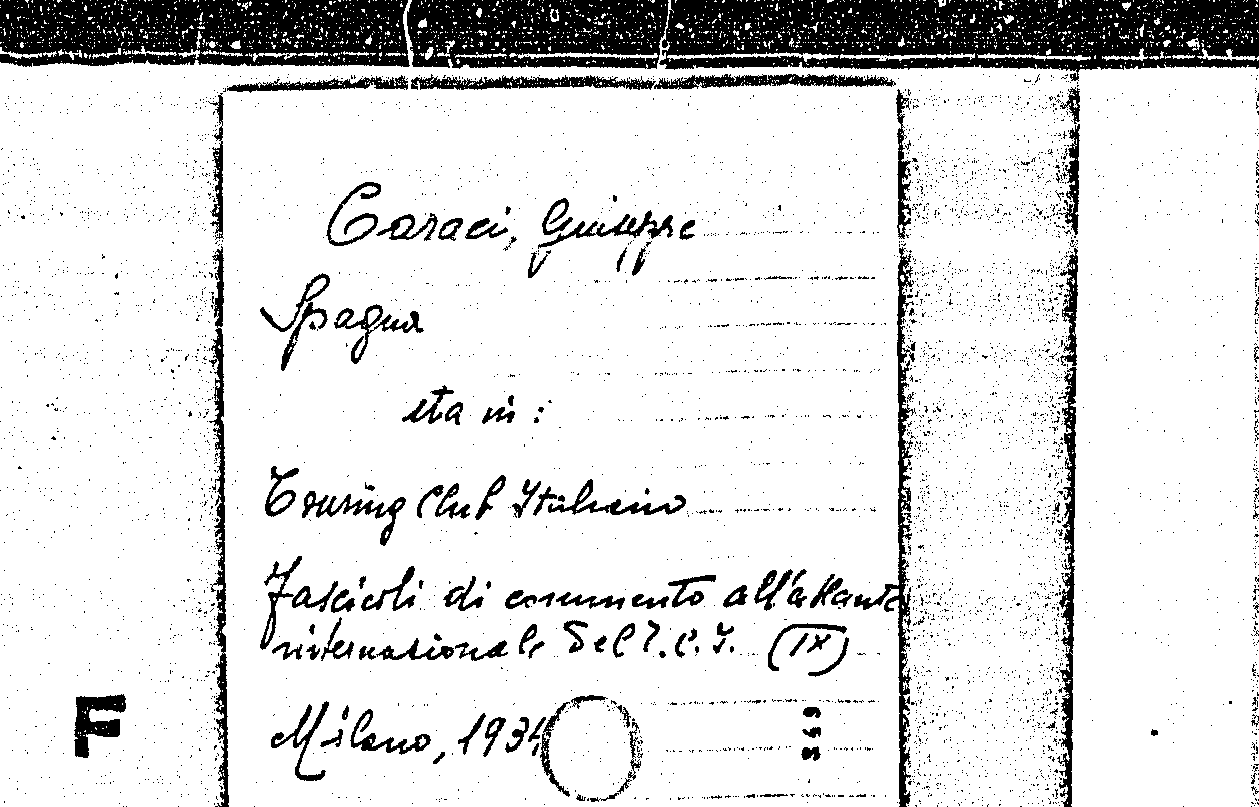 Caraci, Giuseppe
Spagna
sta in :
Touring Club Italiano
Fascicoli di commento all'atlante
internazionale del T.C.I. (IX)
Milano, 1934
F